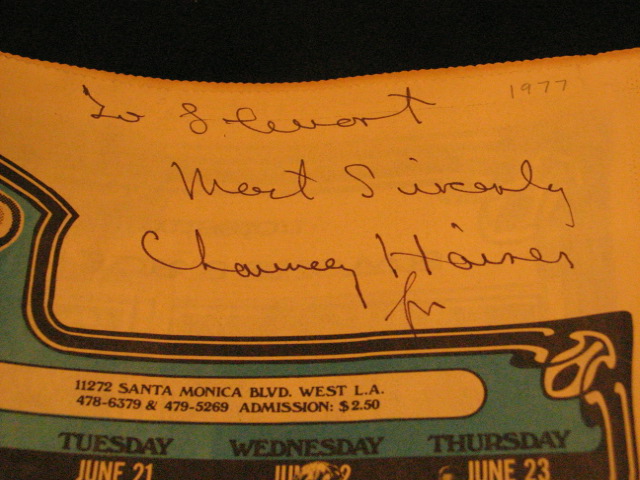 1977
To Stewart
Most Sincerely
Chauncey Haines
Jr
11272 SANTA MONICA BLVD. WEST L.A.
478-6379 & 479-5269 ADMISSION: $2.50
TUESDAY WEDNESDAY THURSDAY
JUNE 21 JUNE 22 JUNE 23